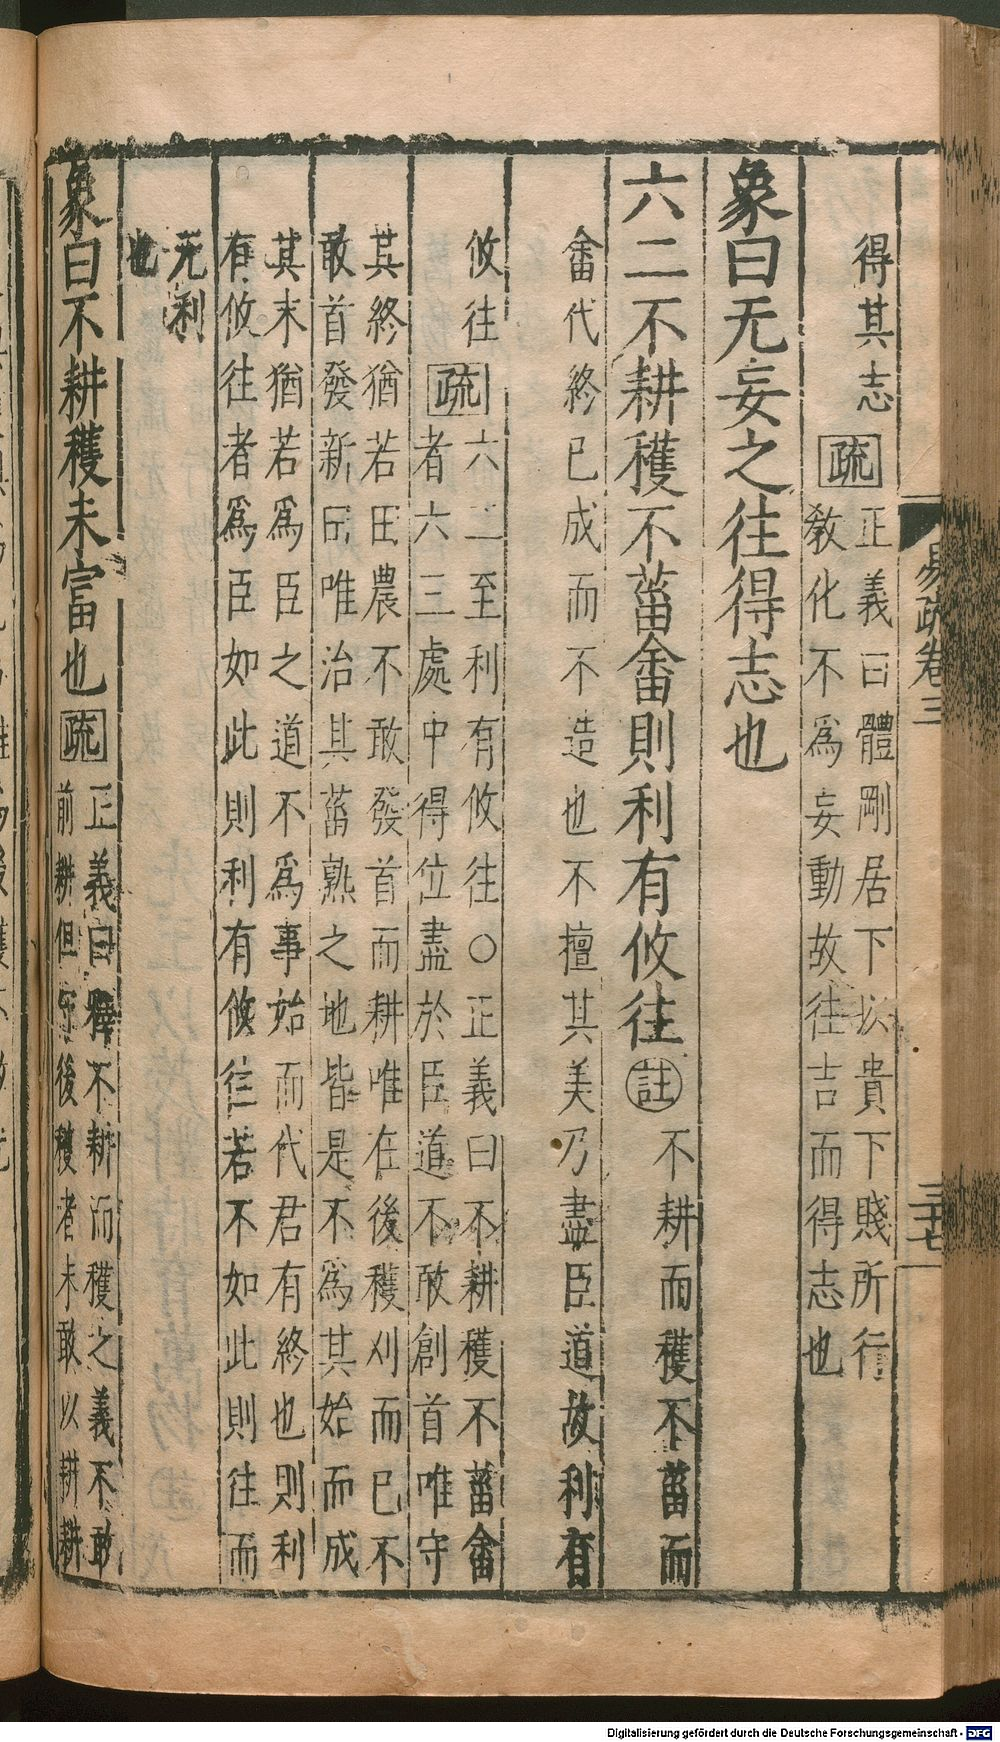 易疏卷三
三十七
得其志
疏
正義曰體剛居下以貴下賤所行
教化不為妄動故往吉而得志也
象曰无妄之往得志也
六二不耕穫不菑畬則利有攸往
註
不耕而穫不菑而
畬代終已成而不造也不擅其美乃盡臣道故利有
攸往
疏
六二至利有攸往○正義曰不耕穫不菑畬
者六三處中得位盡於臣道不敢創首唯守
其終猶若田農不敢發首而耕唯在後穫刈而已不
敢首發新田唯治其菑熟之地皆是不為其始而成
其末猶若為臣之道不為事始而代君有終也則利
有攸往者為臣如此則利有攸往若不如此則往而
无利
也
象曰不耕穫未富也
疏
正義曰釋不耕而穫之義不敢
前耕但守後穫者未敢以耕耕
Digitalisierung gefördert durch die Deutsche Forschungsgemeinschaft - DFG